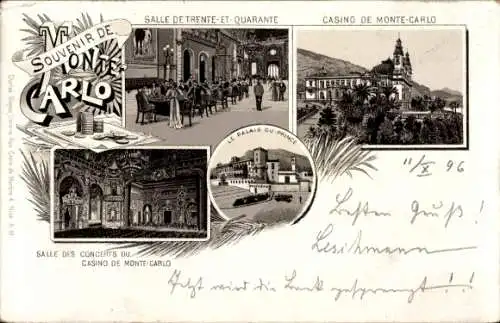 SOUVENIR DE
MONTE-
CARLO
SALLE DE TRENTE-ET-QUARANTE
CASINO DE MONTE-CARLO
LE PALAIS DU PRINCE
SALLE DES CONCERTS DU
CASINO DE MONTE-CARLO
11/X 96
Besten Gruß!
Jetzt wird die Bank gesprengt!!